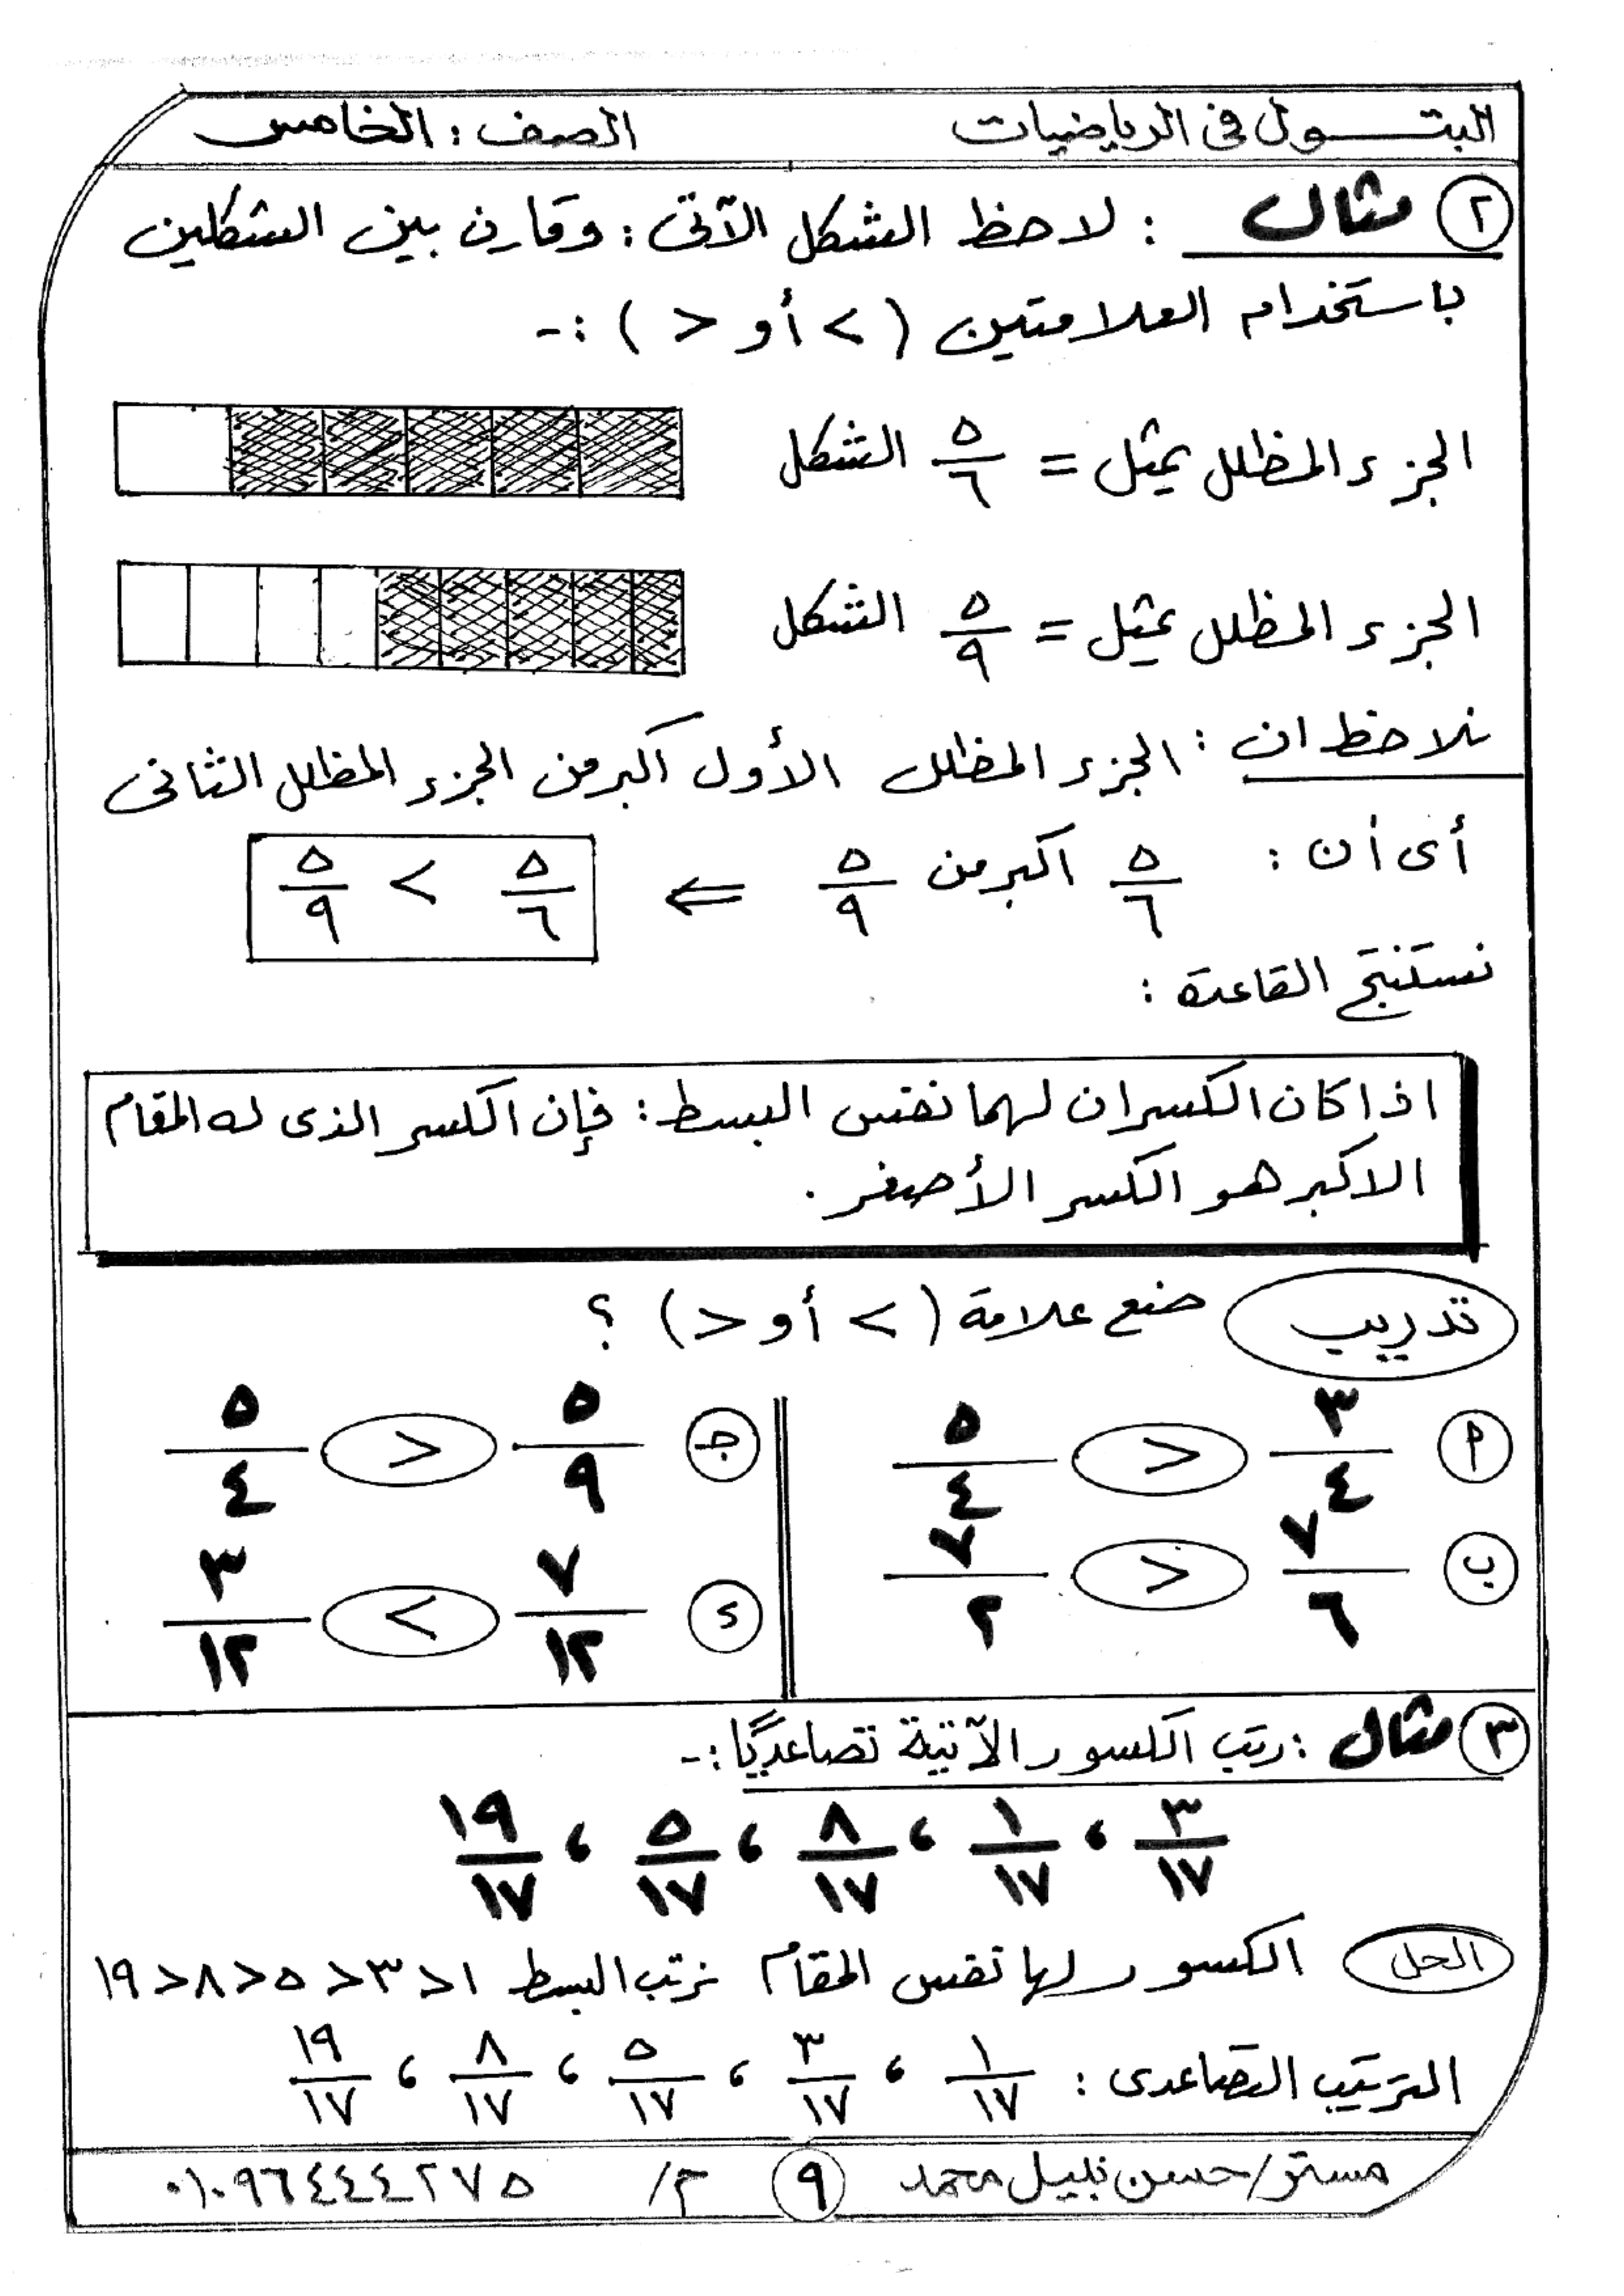 البتــول في الرياضيات الصف : الخامس
٢ مثال : لاحظ الشكل الآتى : وقارن بين الشكلين
باستخدام العلامتين ( > أو < ) :-
الجزء المظلل يمثل = ٥/٦ الشكل
الجزء المظلل يمثل = ٥/٩ الشكل
نلاحظ ان : الجزء المظلل الأول اكبر من الجزء المظلل الثانى
أى أن : ٥/٦ اكبر من ٥/٩ ⇐ ٥/٦ > ٥/٩
نستنتج القاعدة :
اذا كان الكسران لهما نفس البسط : فإن الكسر الذى له المقام
الاكبر هو الكسر الأصغر .
تدريب ضع علامة ( > أو < ) ؟
أ ٣/٤ < ٥/٤ جـ ٥/٩ < ٥/٤
ب ٧/٦ < ٧/٢ د ٧/١٢ > ٣/١٢
٣ مثال : رتب الكسور الآتية تصاعديًا :-
٣/١٧ ، ١/١٧ ، ٨/١٧ ، ٥/١٧ ، ١٩/١٧
الحل الكسور لها نفس المقام نرتب البسط ١ < ٣ < ٥ < ٨ < ١٩
الترتيب التصاعدى : ١/١٧ ، ٣/١٧ ، ٥/١٧ ، ٨/١٧ ، ١٩/١٧
مستر/ حسن نبيل محمد ٩ م/ ٠١٠٩٦٤٤٤٢٧٥